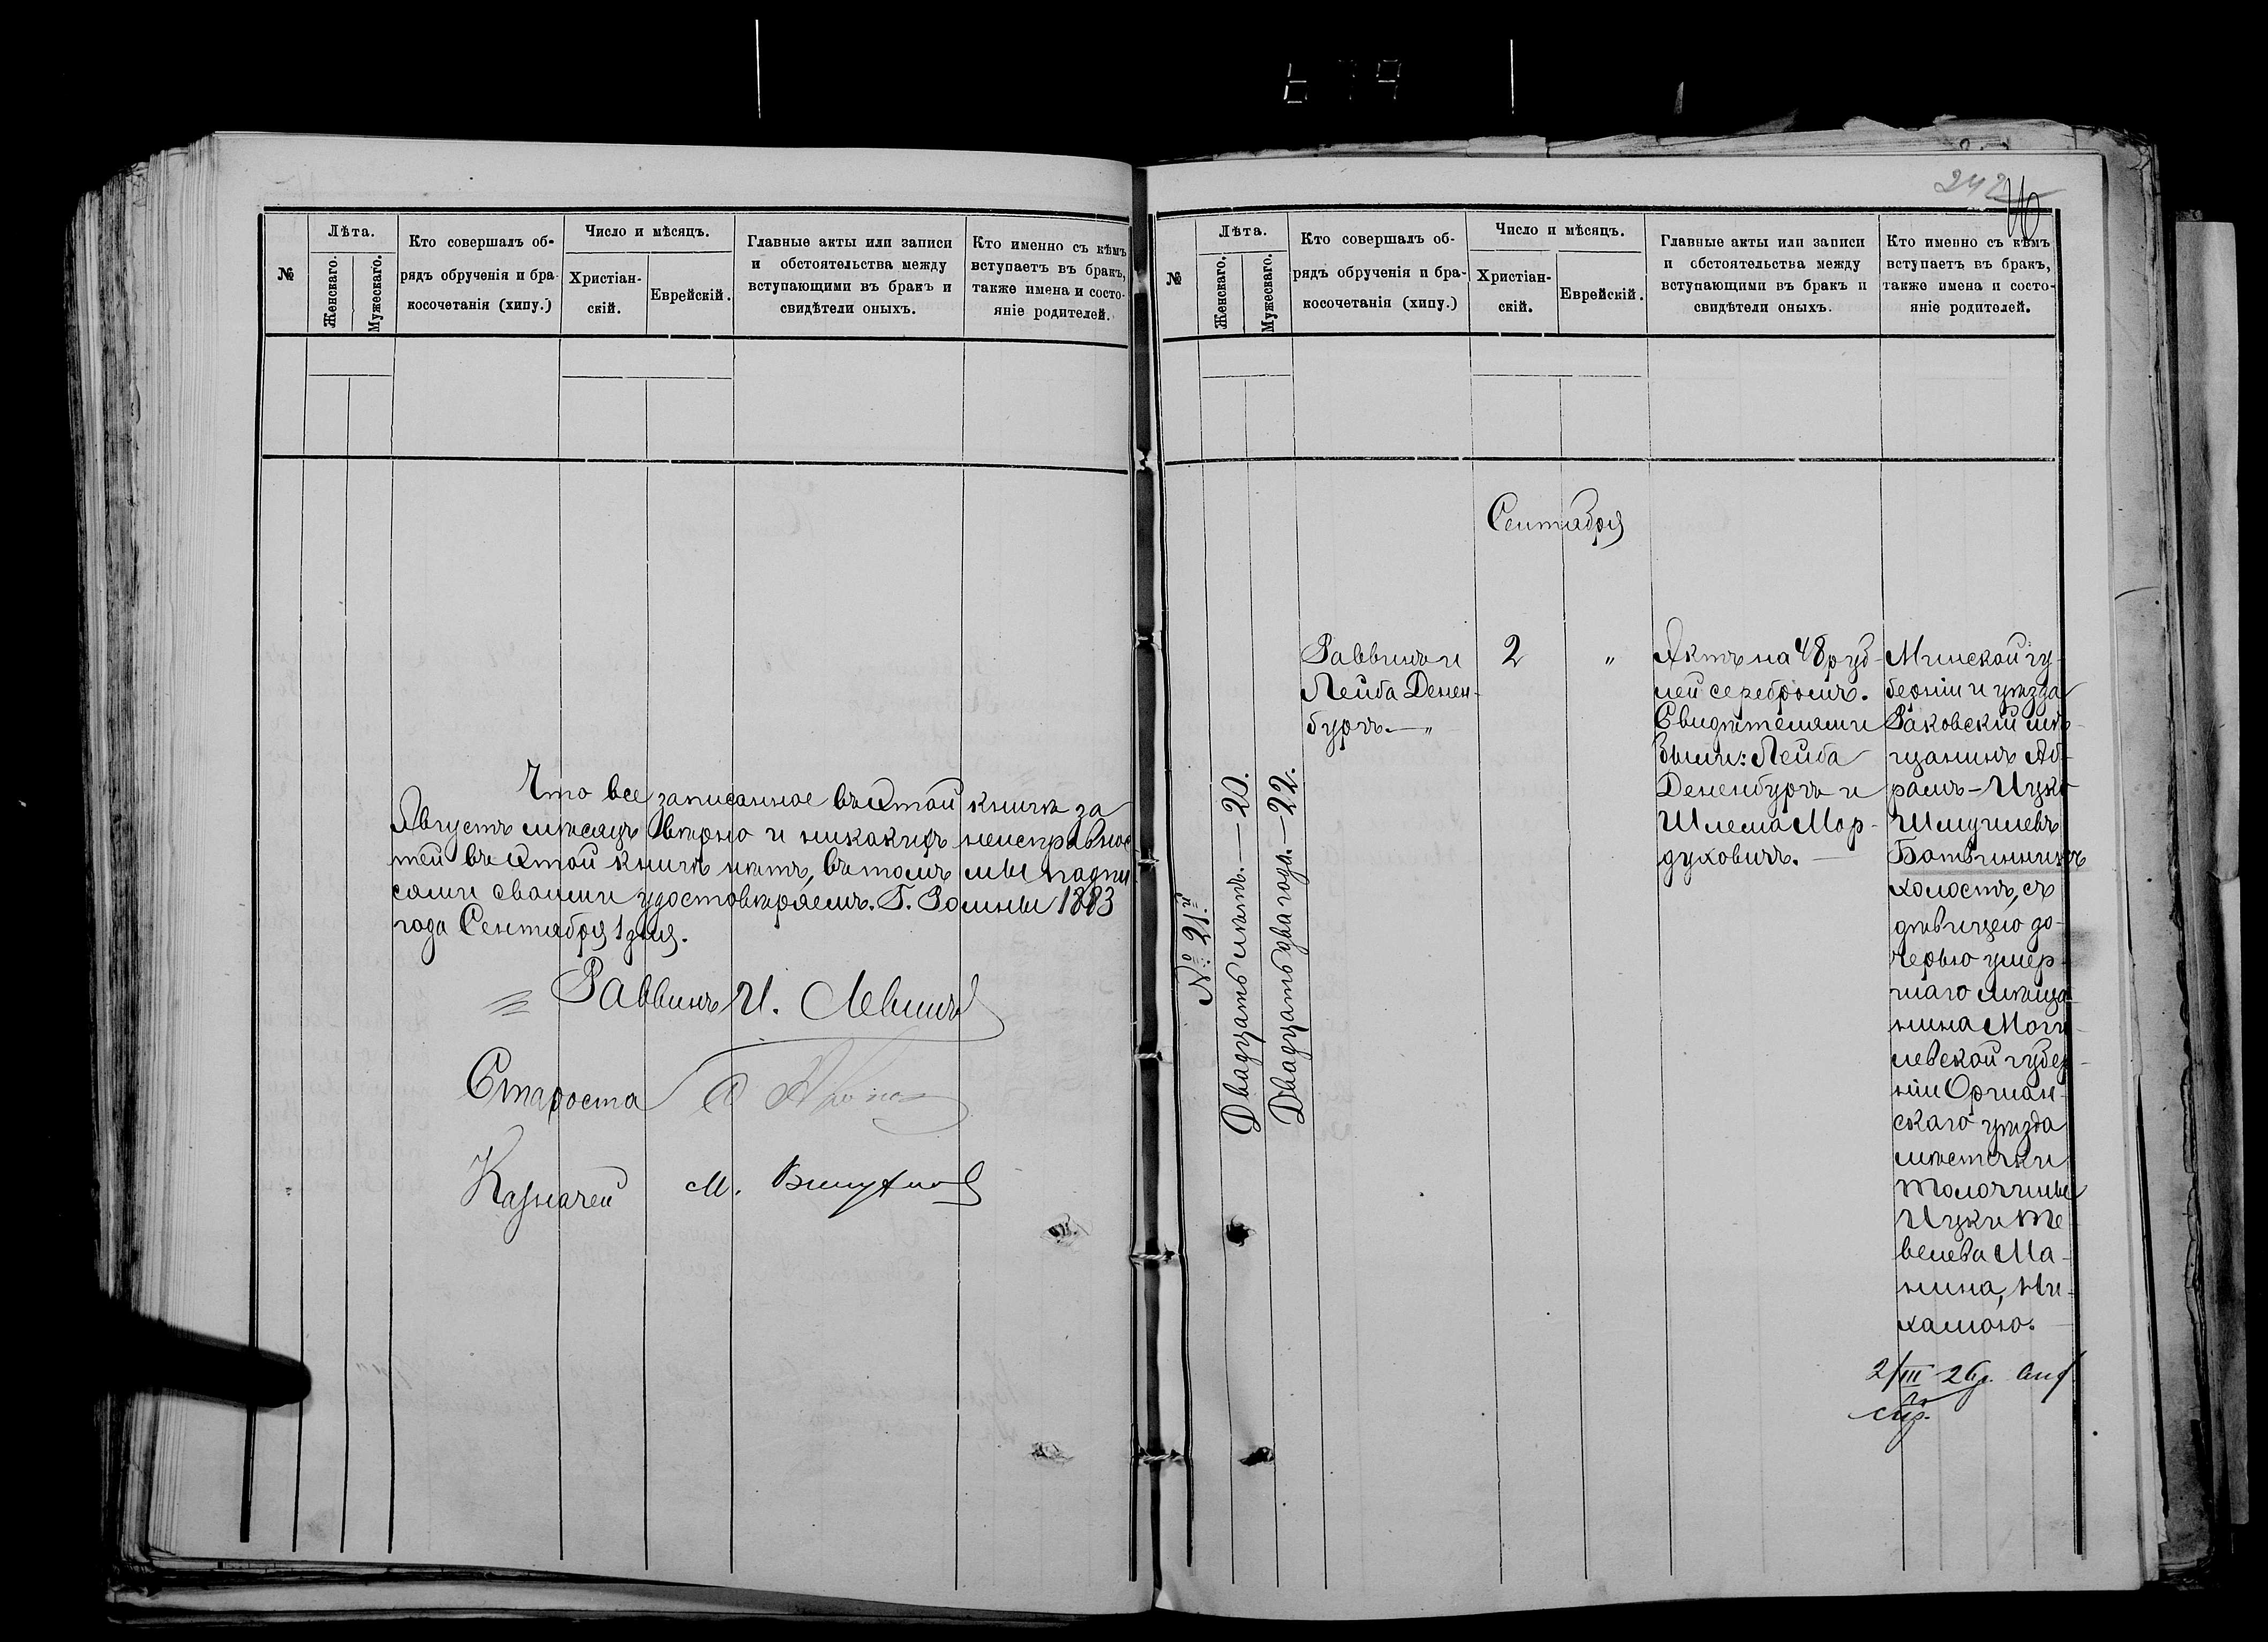 №
Лѣта.
Женскаго.
Мужескаго.
Кто совершалъ об-
рядъ обрученія и бра-
косочетанія (хипу.)
Число и мѣсяцъ.
Христіан-
скій.
Еврейскій.
Главные акты или записи
и обстоятельства между
вступающими въ бракъ и
свидѣтели оныхъ.
Кто именно съ кѣмъ
вступаетъ въ бракъ,
также имена и состо-
яніе родителей.
Что все записанное въ этой книгѣ за
Августъ мѣсяцъ вѣрно и никакихъ неисправнос
тей въ этой книгѣ нѣтъ, въ томъ мы подпи
сами своими удостовѣряемъ. Г. Ромны 1883
года Сентября 1 дня.
Раввинъ И. Левинъ
Староста
Казначей М.
242
№
Лѣта.
Женскаго.
Мужескаго.
Кто совершалъ об-
рядъ обрученія и бра-
косочетанія (хипу.)
Число и мѣсяцъ.
Христіан-
скій.
Еврейскій.
Главные акты или записи
и обстоятельства между
вступающими въ бракъ и
свидѣтели оныхъ.
Кто именно съ кѣмъ
вступаетъ въ бракъ,
также имена и состо-
яніе родителей.
Сентября
№ 21й
Двадцать лѣтъ. — 20.
Двадцать два года. — 22.
Раввинъ и
Лейба Денен-
бургъ. — "
2
"
Актъ на 48 руб-
лей серебромъ.
Свидѣтелями
были: Лейба
Дененбургъ и
Шлема Мор-
духовичъ. —
Минской гу-
берніи и уѣзда
Раковскій мѣ-
щанинъ Аб-
рамъ-Ицко
Шмуилевъ
Ботвинникъ
холостъ, съ
дѣвицею до-
черью умер-
шаго мѣща-
нина Моги-
левской губер-
ніи Оршан-
скаго уѣзда
мѣстечка
Толочина
Ицки Те
велева Ма-
нина, Не-
хамою.
2/III 26 г.